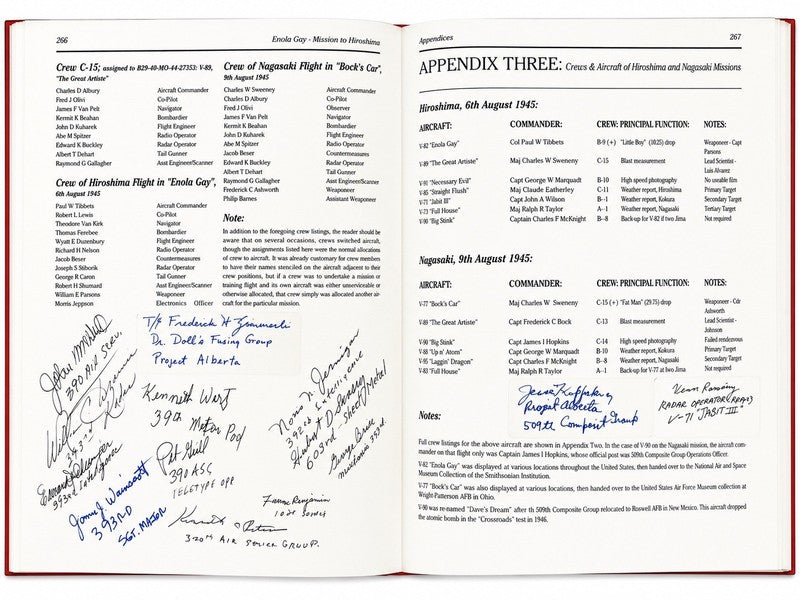 266
Enola Gay - Mission to Hiroshima
Crew C-15; assigned to B29-40-MO-44-27353: V-89,
"The Great Artiste"
Charles D Albury Aircraft Commander
Fred J Olivi Co-Pilot
James F Van Pelt Navigator
Kermit K Beahan Bombardier
John D Kuharek Flight Engineer
Abe M Spitzer Radio Operator
Edward K Buckley Radar Operator
Albert T Dehart Tail Gunner
Raymond G Gallagher Asst Engineer/Scanner
Crew of Hiroshima Flight in "Enola Gay",
6th August 1945
Paul W Tibbets Aircraft Commander
Robert L Lewis Co-Pilot
Theodore Van Kirk Navigator
Thomas Ferebee Bombardier
Wyatt E Duzenbury Flight Engineer
Richard H Nelson Radio Operator
Jacob Beser Countermeasures
Joseph S Stiborik Radar Operator
George R Caron Tail Gunner
Robert H Shumard Asst Engineer/Scanner
William E Parsons Weaponeer
Morris Jeppson Electronics Officer
Crew of Nagasaki Flight in "Bock's Car",
9th August 1945
Charles W Sweeney Aircraft Commander
Charles D Albury Co-Pilot
Fred J Olivi Observer
James F Van Pelt Navigator
Kermit K Beahan Bombardier
John D Kuharek Flight Engineer
Abe M Spitzer Radio Operator
Jacob Beser Countermeasures
Edward K Buckley Radar Operator
Albert T Dehart Tail Gunner
Raymond G Gallagher Asst Engineer/Scanner
Frederick C Ashworth Weaponeer
Philip Barnes Assistant Weaponeer
Note:
In addition to the foregoing crew listings, the reader should be
aware that on several occasions, crews switched aircraft,
though the assignments listed here were the normal allocations
of crew to aircraft. It was already customary for crew members
to have their names stenciled on the aircraft adjacent to their
crew positions, but if a crew was to undertake a mission or
training flight and its own aircraft was either unserviceable or
otherwise allocated, that crew simply was allocated another air-
craft for the particular mission.
T/3 Frederick H
Dr. Doll's Fusing Group
Project Alberta
390 Air Serv.
William C
Radar
393rd
393rd Intelligence
Kenneth Wert
39th Motor Pool
Pat
390 ASG
TELETYPE OPP
392nd Intelligence
Hubert D
603rd - Sheet Metal
George
393d.
James J.
393RD
SGT. MAJOR
Benjamin
Kenneth
320th AIR Service GROUP.
Appendices
267
APPENDIX THREE: Crews & Aircraft of Hiroshima and Nagasaki Missions
Hiroshima, 6th August 1945:
AIRCRAFT: COMMANDER: CREW: PRINCIPAL FUNCTION: NOTES:
V-82 "Enola Gay" Col Paul W Tibbets B-9 (+) "Little Boy" (1025) drop Weaponeer - Capt
Parsons
V-89 "The Great Artiste" Maj Charles W Sweeny C-15 Blast measurement Lead Scientist -
Luis Alvarez
V-91 "Necessary Evil" Capt George W Marquadt B-10 High speed photography No useable film
V-85 "Straight Flush" Maj Claude Eatherley C-11 Weather report, Hiroshima Primary Target
V-71 "Jabit III" Capt John A Wilson B--1 Weather report, Kokura Secondary Target
V-73 "Full House" Maj Ralph R Taylor A--1 Weather report, Nagasaki Tertiary Target
V-90 "Big Stink" Captain Charles F McKnight B--8 Back-up for V-82 if two Jima Not required
Nagasaki, 9th August 1945:
AIRCRAFT: COMMANDER: CREW: PRINCIPAL FUNCTION: NOTES:
V-77 "Bock's Car" Maj Charles W Sweeny C-15 (+) "Fat Man" (29.75) drop Weaponeer - Cdr
Ashworth
V-89 "The Great Artiste" Capt Frederick C Bock C-13 Blast measurement Lead Scientist -
Johnson
V-90 "Big Stink" Capt James I Hopkins C-14 High speed photography Failed rendezvous
V-88 "Up n' Atom" Capt George W Marquadt B-10 Weather report, Kokura Primary Target
V-95 "Laggin' Dragon" Capt Charles F McKnight B-8 Weather report, Nagasaki Secondary Target
V-83 "Full House" Maj Ralph R Taylor A--1 Back-up for V-77 at two Jima Not required
Jesse Kupferberg
Project Alberta
509th Composite Group
Kenn
RADAR OPERATOR
V-71 "JABIT III"
Notes:
Full crew listings for the above aircraft are shown in Appendix Two. In the case of V-90 on the Nagasaki mission, the aircraft com-
mander on that flight only was Captain James I Hopkins, whose official post was 509th Composite Group Operations Officer.
V-82 "Enola Gay" was displayed at various locations throughout the United States, then handed over to the National Air and Space
Museum Collection of the Smithsonian Institution.
V-77 "Bock's Car" was also displayed at various locations, then handed over to the United States Air Force Museum collection at
Wright-Patterson AFB in Ohio.
V-90 was re-named "Dave's Dream" after th 509th Composite Group relocated to Roswell AFB in New Mexico. This aircraft dropped
the atomic bomb in the "Crossroads" test in 1946.